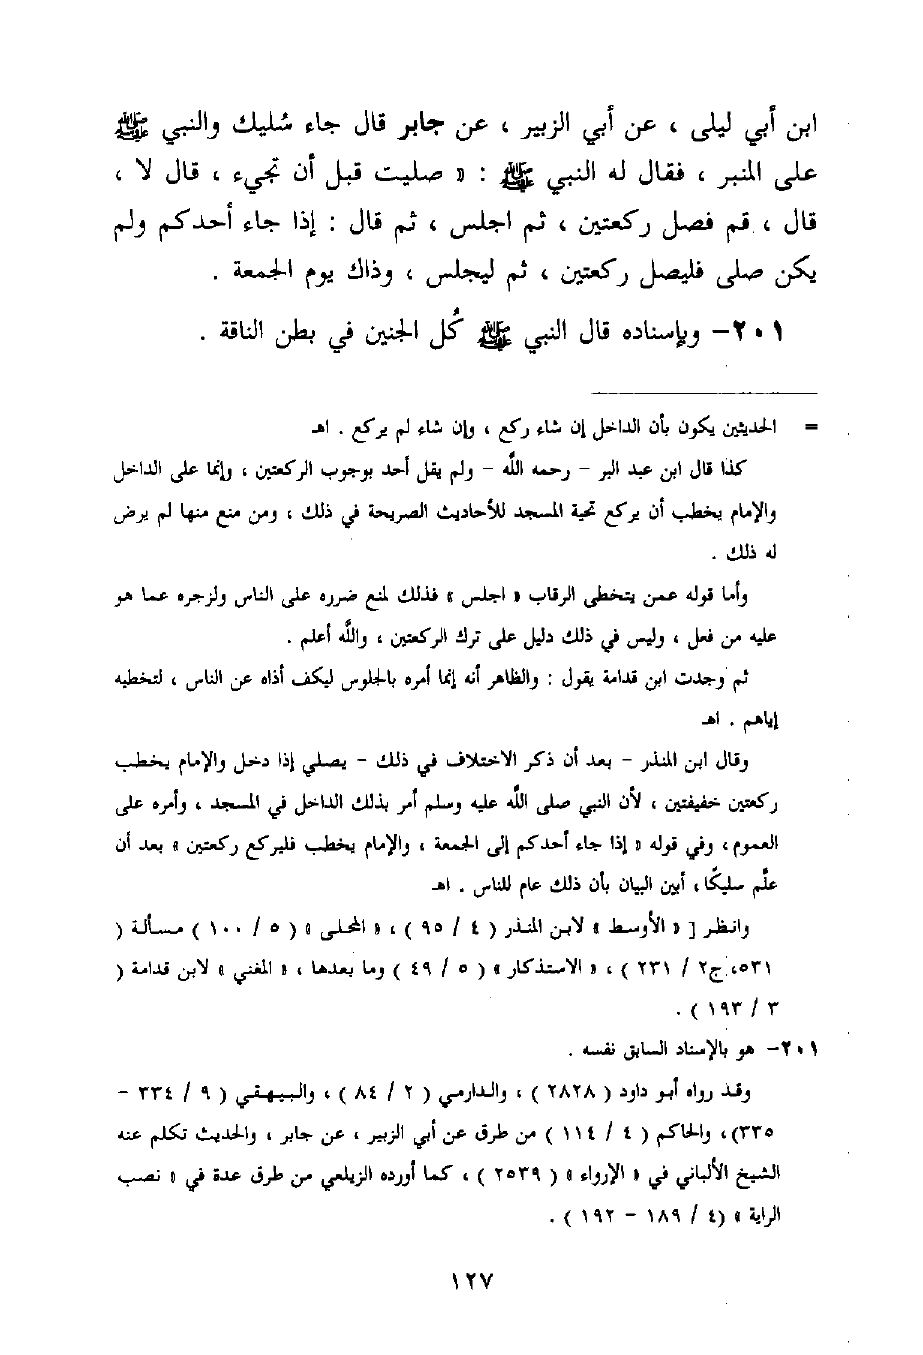 ابن أبي ليلى ، عن أبي الزبير ، عن جابر قال جاء سُليك والنبي ﷺ
على المنبر ، فقال له النبي ﷺ : « صليت قبل أن تجيء ، قال لا ،
قال ، قم فصل ركعتين ، ثم اجلس ، ثم قال : إذا جاء أحدكم ولم
يكن صلى فليصل ركعتين ، ثم ليجلس ، وذاك يوم الجمعة .
٢٠١- وبإسناده قال النبي ﷺ كُل الجنين في بطن الناقة .
= الحديثين يكون بأن الداخل إن شاء ركع ، وإن شاء لم يركع . اهـ
كذا قال ابن عبد البر – رحمه الله – ولم يقل أحد بوجوب الركعتين ، وإنما على الداخل
والإمام يخطب أن يركع تحية المسجد للأحاديث الصريحة في ذلك ، ومن منع منها لم يرض
له ذلك .
وأما قوله عمن يتخطى الرقاب « اجلس » فذلك لمنع ضرره على الناس ولزجره عما هو
عليه من فعل ، وليس في ذلك دليل على ترك الركعتين ، والله أعلم .
ثم وجدت ابن قدامة يقول : والظاهر أنه إنما أمره بالجلوس ليكف أذاه عن الناس ، لتخطيه
إياهم . اهـ
وقال ابن المنذر – بعد أن ذكر الاختلاف في ذلك – يصلي إذا دخل والإمام يخطب
ركعتين خفيفتين ، لأن النبي صلى الله عليه وسلم أمر بذلك الداخل في المسجد ، وأمره على
العموم، وفي قوله « إذا جاء أحدكم إلى الجمعة ، والإمام يخطب فليركع ركعتين » بعد أن
علَّم سليكًا، أبين البيان بأن ذلك عام للناس . اهـ
وانظر [ « الأوسط » لابن المنذر ( ٤ / ٩٥ ) ، « المحلى » ( ٥ / ١٠٠ ) مسألة (
٥٣١، ج٢ / ٢٣١ ) ، « الاستذكار » ( ٥ / ٤٩ ) وما بعدها ، « المغني » لابن قدامة (
٣ / ١٩٣ ) .
٢٠١- هو بالإسناد السابق نفسه .
وقد رواه أبو داود ( ٢٨٢٨ ) ، والدارمي ( ٢ / ٨٤ ) ، والبيهقي ( ٩ / ٣٣٤ –
٣٣٥)، والحاكم ( ٤ / ١١٤ ) من طرق عن أبي الزبير ، عن جابر ، والحديث تكلم عنه
الشيخ الألباني في « الإرواء » ( ٢٥٣٩ ) ، كما أورده الزيلعي من طرق عدة في « نصب
الراية » (٤ / ١٨٩ – ١٩٢ ) .
١٢٧